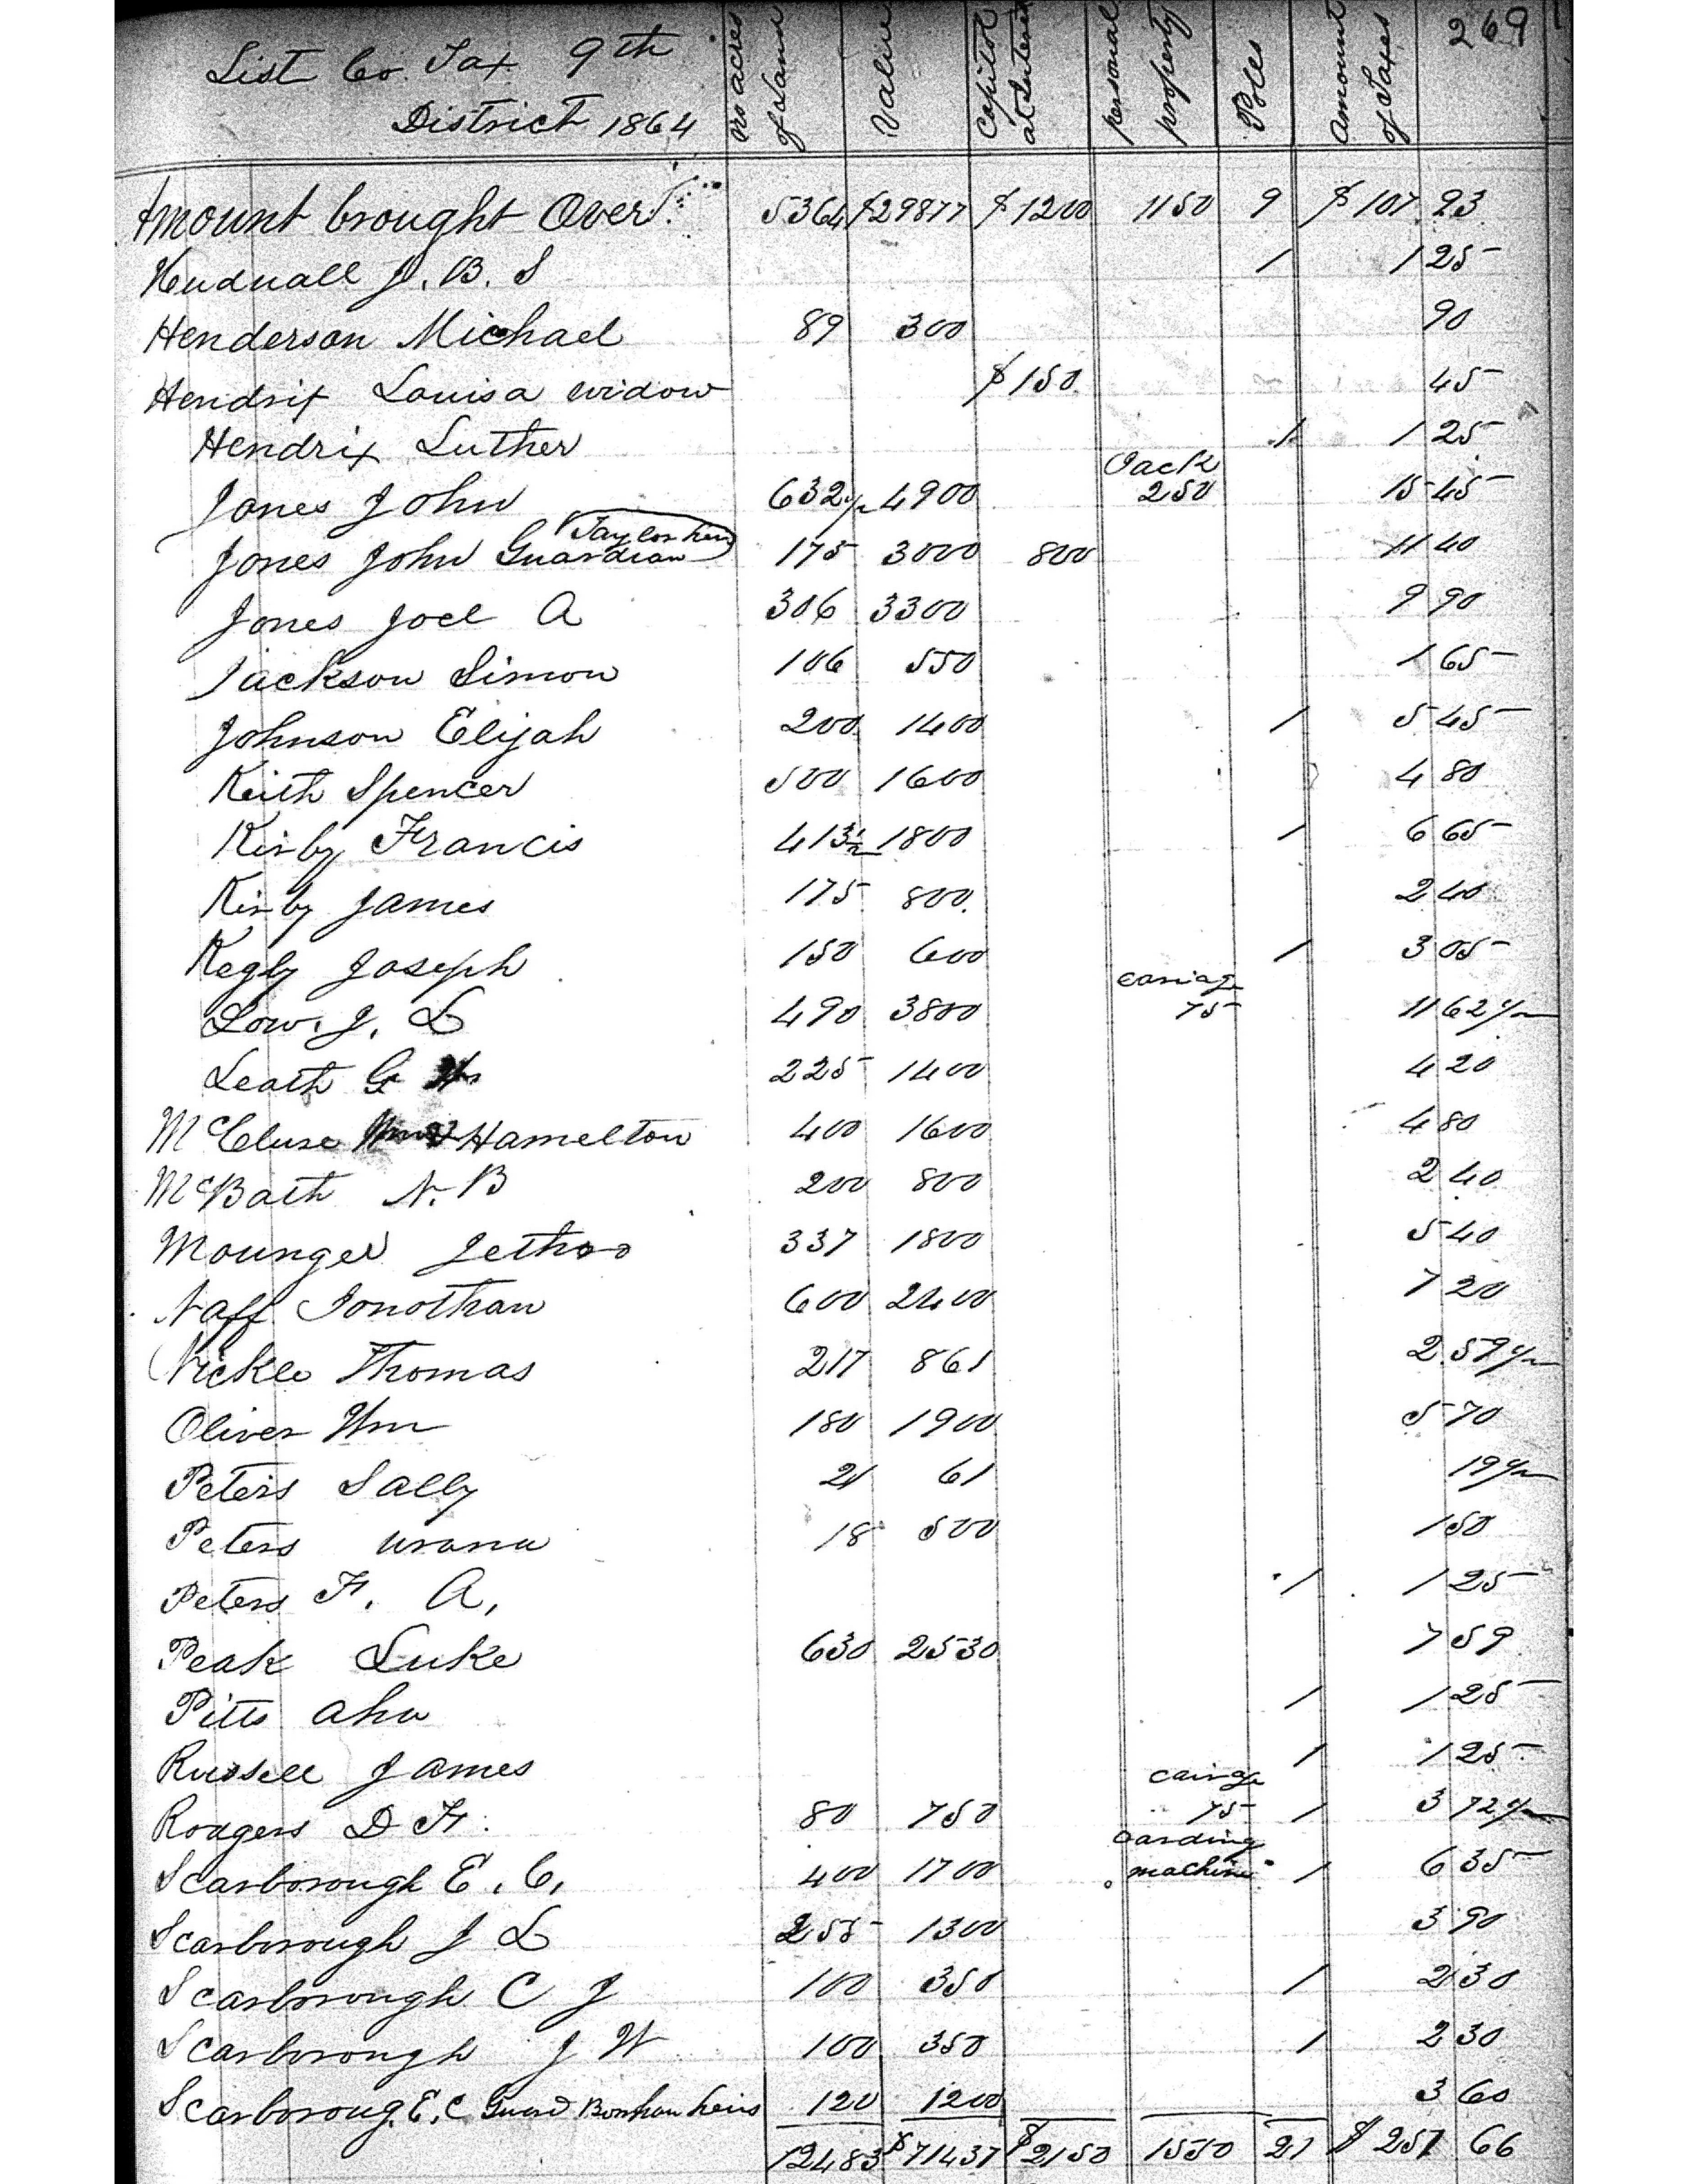 List Co. Tax 9th District 1864 | No acres of Land | Value | Capitol at Interest | personal property | Poles | Amount of Taxes | 269
Amount brought Over 5364 $29877 $1200 1150 9 $107.93
Hudnall J. B. S 1 1 25
Henderson Michael 89 300 90
Hendrix Louisa widow $150 45
Hendrix Luther 1 1 25
Jones John 632½ 4900 Jack 250 15 45
Jones John Guardian Taylor heirs 175 3000 800 11 40
Jones Joel A 306 3300 9 90
Jackson Simon 106 550 1 65
Johnson Elijah 200 1400 1 5 45
Keith Spencer 500 1600 4 80
Kirby Francis 413½ 1800 1 6 65
Kirby James 175 800 2 40
Kegly Joseph 150 600 1 3 05
Low. J. L 490 3800 carriage 75 11 62½
Leath G 225 1400 4 20
McCluse Hamelton 400 1600 4 80
McBath N. B 200 800 2 40
Mounger Jethro 337 1800 5 40
Naff Jonothan 600 2400 7 20
Nickle Thomas 217 861 2.59½
Oliver Wm 180 1900 5 70
Peters Sally 21 61 19½
Peters urana 18 500 1 50
Peters F. A. 1 1 25
Peak Luke 630 2530 7 59
Pitts 1 1 25
Russell James 1 1 25
Rodgers D F. 80 750 cairage 75 1 3 72½
Scarborough E. C. 400 1700 carding machine 1 6 35
Scarborough J L 255 1300 3 90
Scarborough C J 100 350 1 2 30
Scarborough J W 100 350 1 2 30
Scarboroug. E. C Guard Bonham heirs 120 1200 3 60
12483 $71437 $2150 1550 21 $251 66